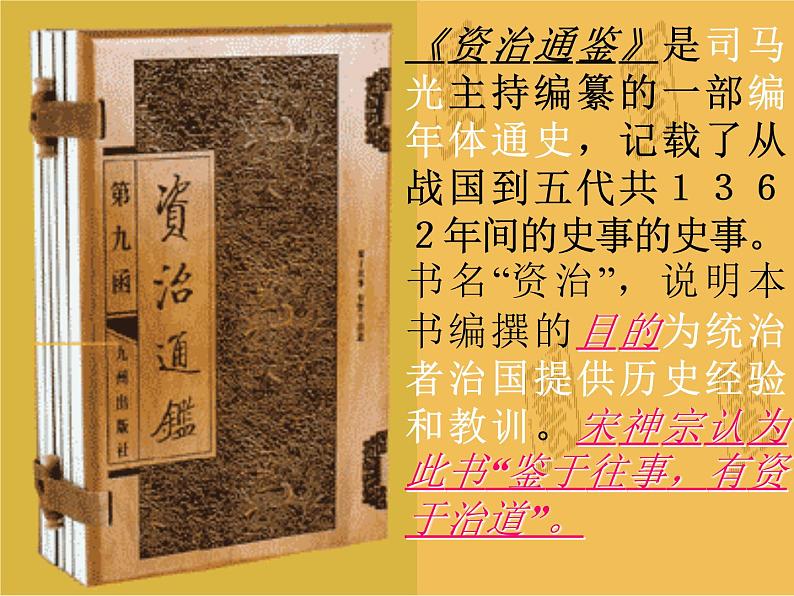 第九函
資治通鑑
九州出版社
《资治通鉴》是司马
光主持编纂的一部编
年体通史，记载了从
战国到五代共１３６
２年间的史事的史事。
书名“资治”，说明本
书编撰的目的为统治
者治国提供历史经验
和教训。宋神宗认为
此书“鉴于往事，有资
于治道”。